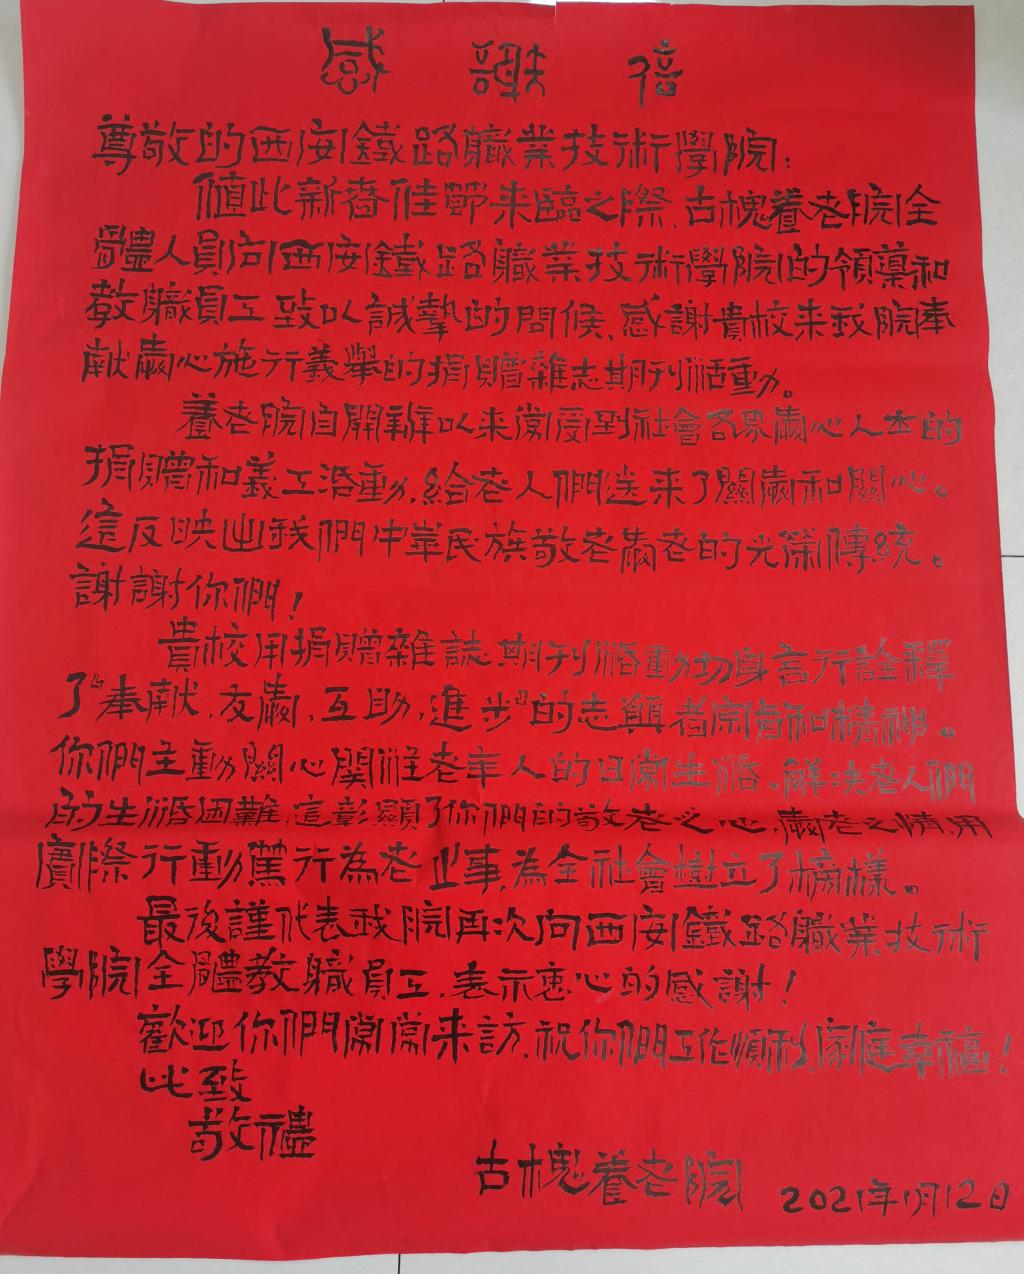 感謝信
尊敬的西安鐵路職業技術學院：
值此新春佳節来臨之際，古槐養老院全
體人員向西安鐵路職業技術學院的領導和
教職員工致以誠摯的問候，感謝貴校来我院奉
献愛心施行義舉的捐贈雜志期刊活動。
養老院自開辦以来常受到社會各界愛心人士的
捐贈和義工活動，給老人們送来了關愛和關心。
這反映出我們中華民族敬老愛老的光榮傳統。
謝謝你們！
貴校用捐贈雜誌期刊活動切身言行詮釋
了“奉献，友愛，互助，進步”的志願者宗旨和精神。
你們主動關心關注老年人的日常生活，解决老人們
的生活困難，這彰顯了你們的敬老之心，愛老之情，用
實際行動篤行為老企事，為全社會樹立了榜樣。
最後謹代表我院再次向西安鐵路職業技術
學院全體教職員工，表示衷心的感謝！
歡迎你們常常来訪，祝你們工作順利，家庭幸福！
此致
敬禮
古槐養老院 2021年1月12日